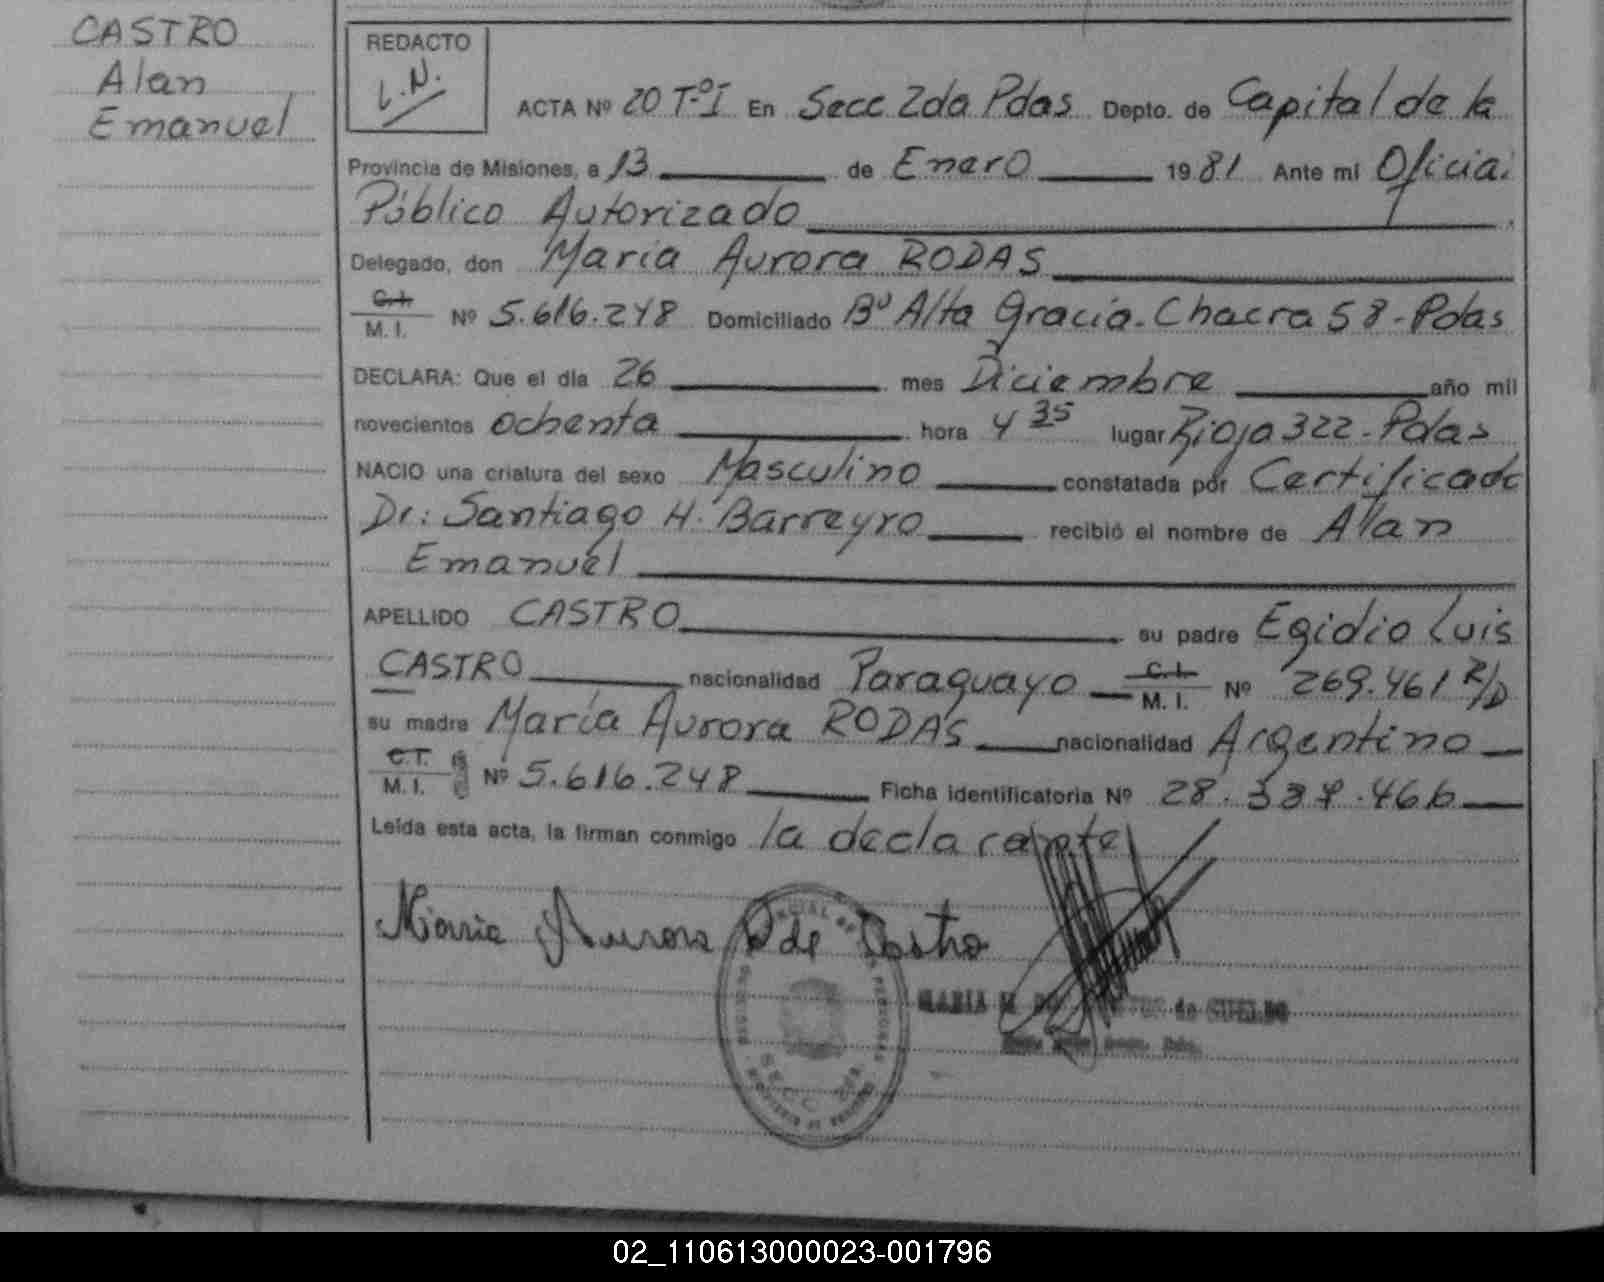 CASTRO
Alan
Emanuel
REDACTO
L.N.
ACTA Nº 20 Tº I En Secc 2da Pdas Depto. de Capital de la
Provincia de Misiones, a 13 de Enero 1981 Ante mi Oficial
Público Autorizado
Delegado, don María Aurora RODAS
C.I. M. I. Nº 5.616.248 Domiciliado Bº Alta Gracia. Chacra 58 - Pdas
DECLARA: Que el dia 26 mes Diciembre año mil
novecientos ochenta hora 4 35 lugar Rioja 322 - Pdas
NACIO una criatura del sexo Masculino constatada por Certificado
Dr: Santiago H. Barreyro recibió el nombre de Alan
Emanuel
APELLIDO CASTRO su padre Egidio Luis
CASTRO nacionalidad Paraguayo C.I. M. I. Nº 269.461 R/D
su madre María Aurora RODAS nacionalidad Argentino
C.I. M. I. Nº 5.616.248 Ficha identificatoria Nº 28.337.466
Leída esta acta, la firman conmigo la declarante
Maria Aurora R de Castro
MARIA M de SUELDO
02_110613000023-001796